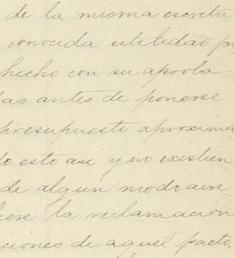 de la misma escritu
conocida utilidad pú
hecho con su aproba
das antes de ponerse
presupuesto aproxima
do esto asi y no existien
de algun modo
la reclamacion
ciones de aquel pacto,